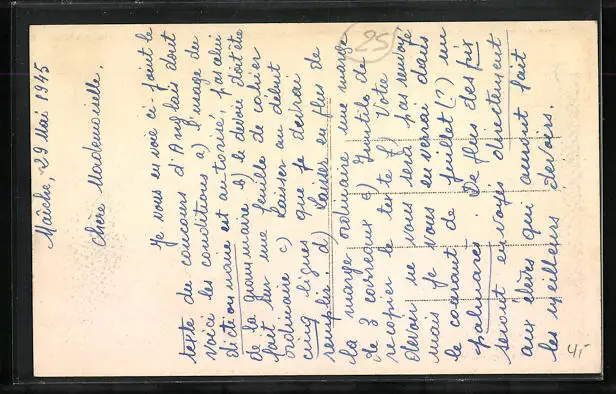 Maîche, 29 Mai 1945
Chère Mademoiselle,
Je vous envoie ci-joint le
texte du concours d'Anglais dont
voici les conditions a) l'usage du
dictionnaire est autorisé, pas celui
de la grammaire b) le devoir doit être
fait sur une feuille de cahier
ordinaire c) laisser au début
cinq lignes que je devrai
remplir. d) laisser en plus de
la marge ordinaire une marge
de 3 carreaux e) Inutile de
recopier le texte f) Votre
devoir ne vous sera pas renvoyé
mais je vous enverrai dans
le courant de juillet (?) un
palmarès. De plus des prix
seront envoyés directement
aux élèves qui auront fait
les meilleurs devoirs.
25
4,-